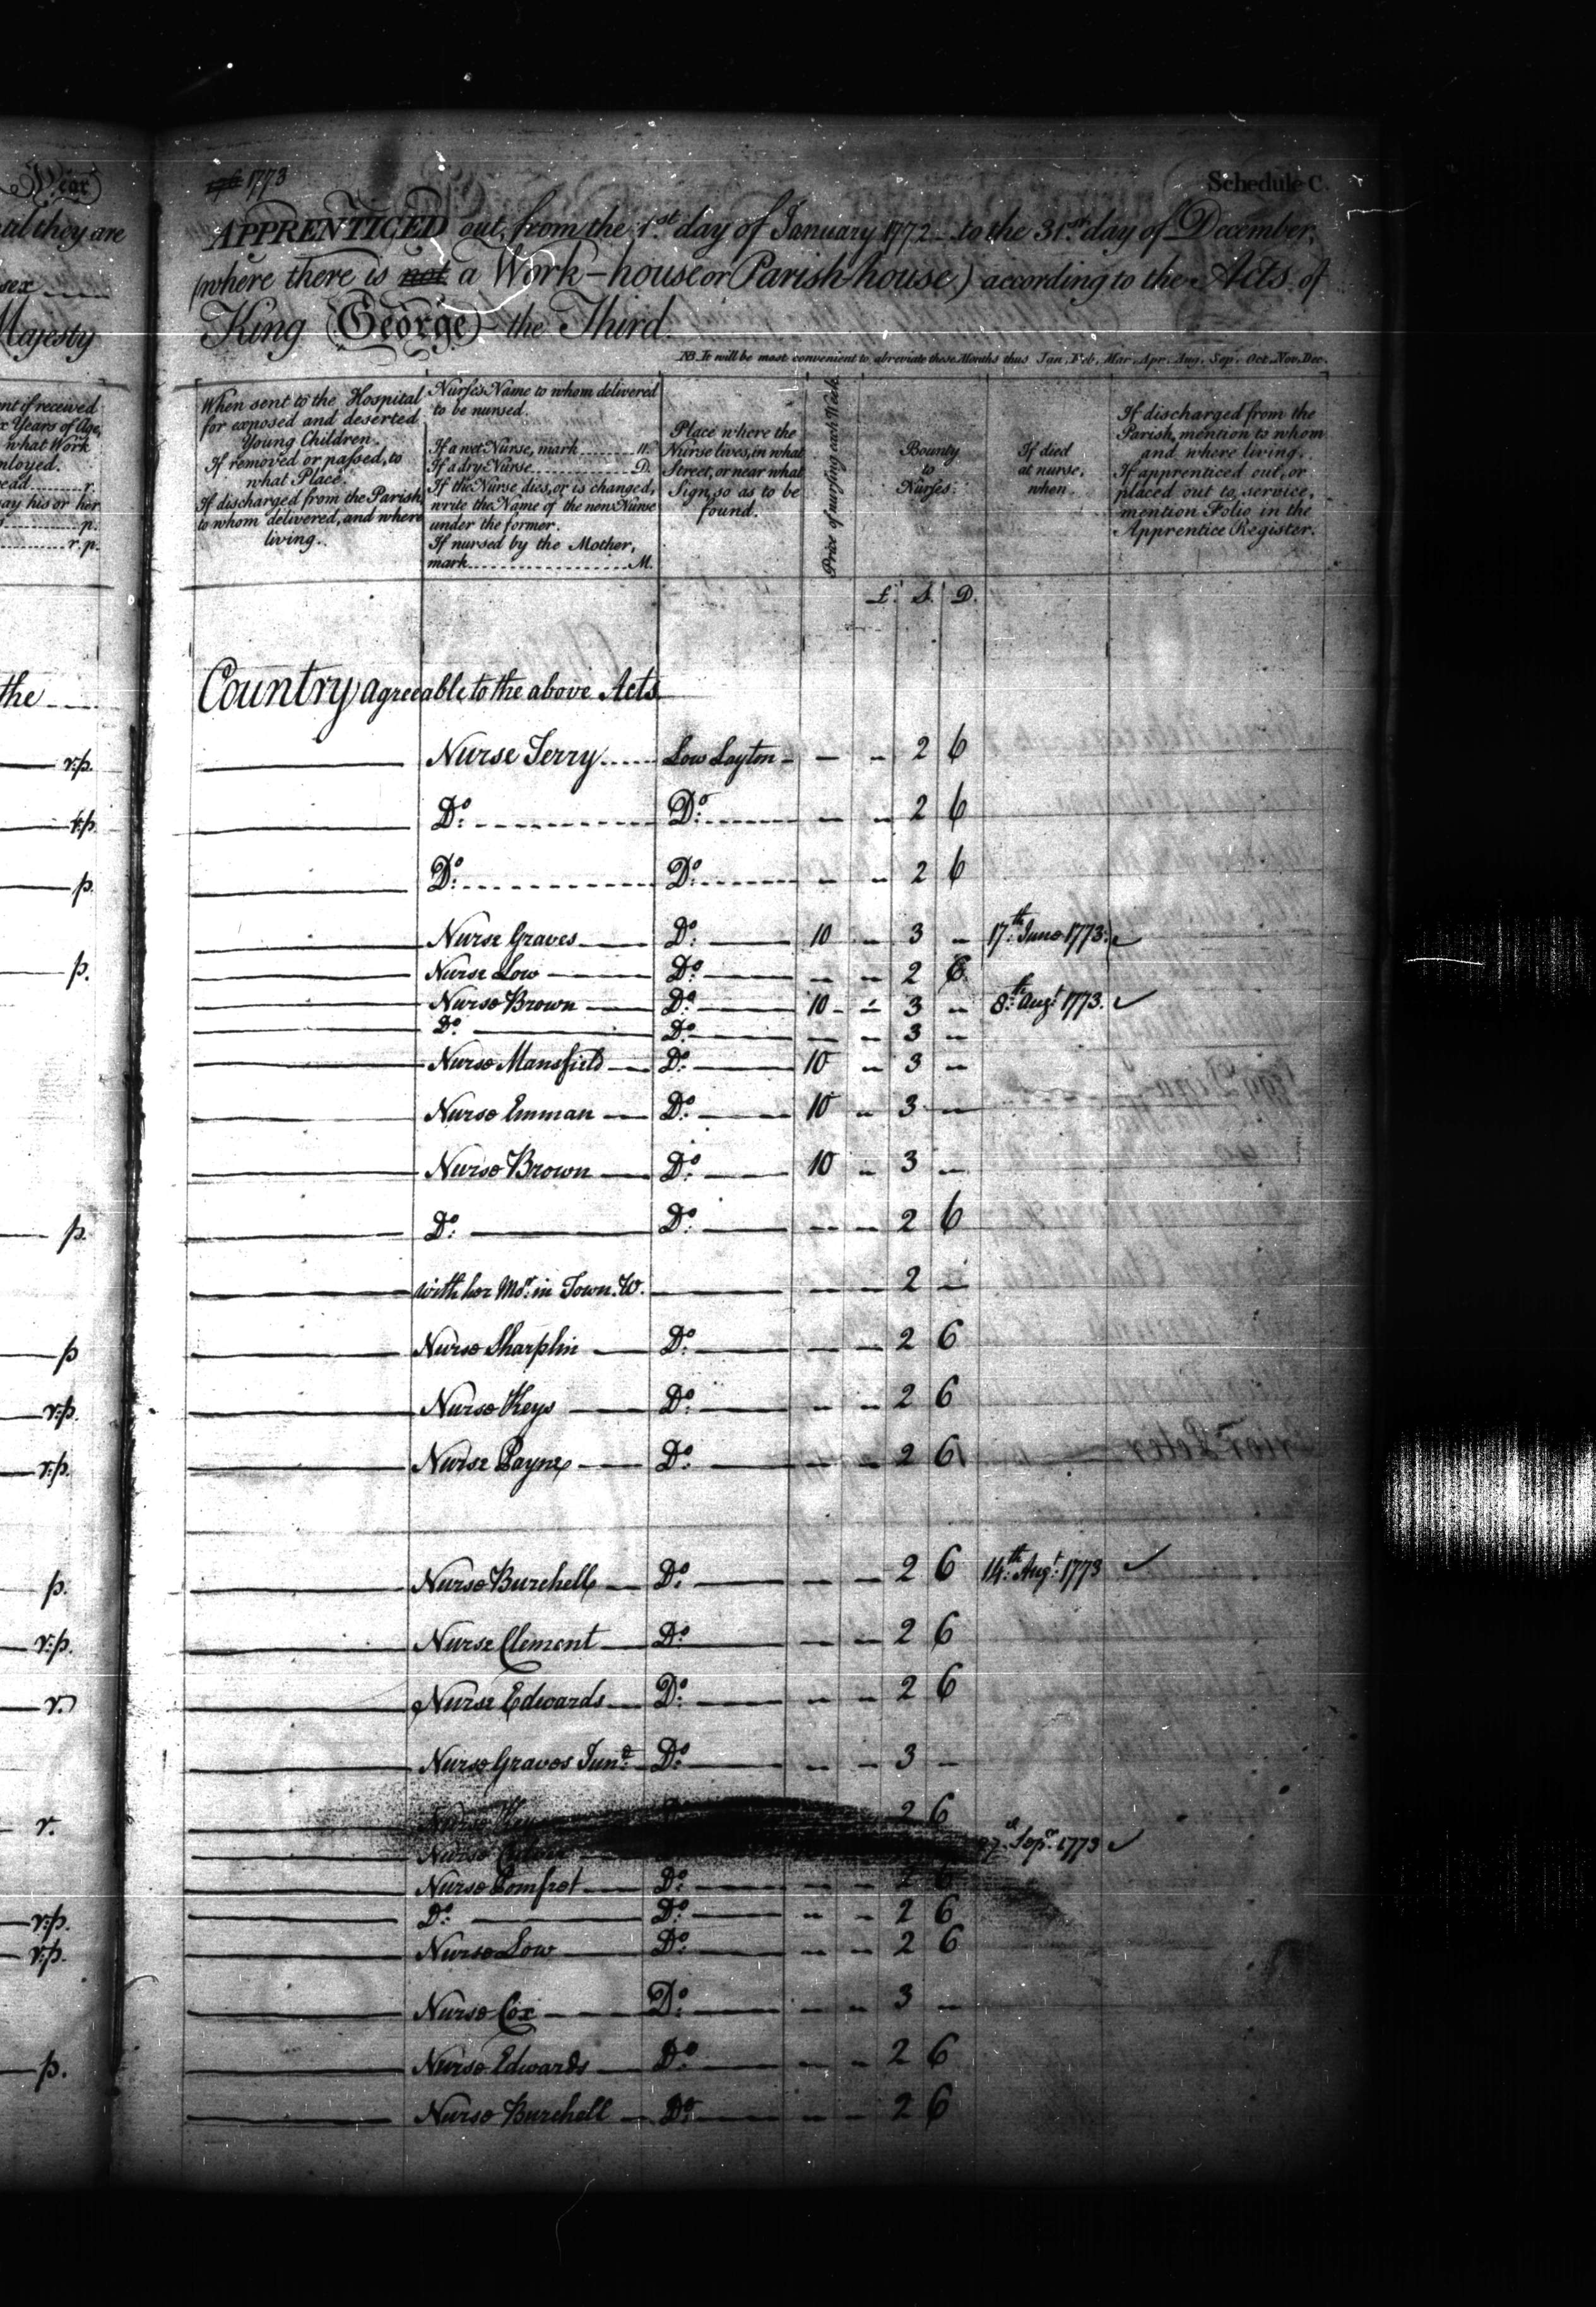 Year
1773
Schedule C.
until they are
APPRENTICED out, from the 1st day of January 1772 to the 31st day of December,
(where there is not a Work-house or Parish house) according to the Acts of
Majesty
King George the Third.
NB. It will be most convenient to abreviate these Months thus Jan, Feb, Mar, Apr, Aug, Sep, Oct, Nov, Dec.
received
Years of Age,
what Work
his or her
p.
r.p.
When sent to the Hospital
for exposed and deserted
Young Children.
If removed or passed, to
what Place.
If discharged from the Parish,
to whom delivered, and where
living.
Nurse's Name to whom delivered
to be nursed.
If a wet Nurse, mark W.
If a dry Nurse D.
If the Nurse dies, or is changed,
write the Name of the new Nurse
under the former.
If nursed by the Mother,
mark M.
Place where the
Nurse lives, in what
Street, or near what
Sign, so as to be
found.
Price of nursing each Week.
Bounty
to
Nurses.
If died
at nurse,
when.
If discharged from the
Parish, mention to whom
and where living.
If apprenticed out, or
placed out to service,
mention Folio in the
Apprentice Register.
£. S. D.
the
Country agreeable to the above Acts
r.p. Nurse Terry Low Layton - - 2 6
r.p. Do. Do. - - 2 6
p. Do. Do. - - 2 6
Nurse Graves Do. 10 - 3 - 17th June 1773
p. Nurse Low Do. - - 2 6
Nurse Brown Do. 10 - 3 - 8th Augt 1773. ✓
Do. Do. - - 3 -
Nurse Mansfield Do. 10 - 3 -
Nurse Emman Do. 10 - 3 -
Nurse Brown Do. 10 - 3 -
p. Do. Do. - - 2 6
with her Mor. in Town. W. - - 2 -
p Nurse Sharplin Do. - - 2 6
r.p. Nurse Keys Do. - - 2 6
r.p. Nurse Payne Do. - - 2 6
p. Nurse Burchell Do. - - 2 6 14th Augt 1773 ✓
r.p. Nurse Clement Do. - - 2 6
r. Nurse Edwards Do. - - 2 6
Nurse Graves Junr. Do. - - 3 -
r. Nurse 2 6
Nurse Sepr. 1773 ✓
Nurse Pomfret Do. - -
r.p. Do. Do. - - 2 6
r.p. Nurse Low Do. - - 2 6
Nurse Cox Do. - - 3 -
p. Nurse Edwards Do. - - 2 6
Nurse Burchell Do. - - 2 6